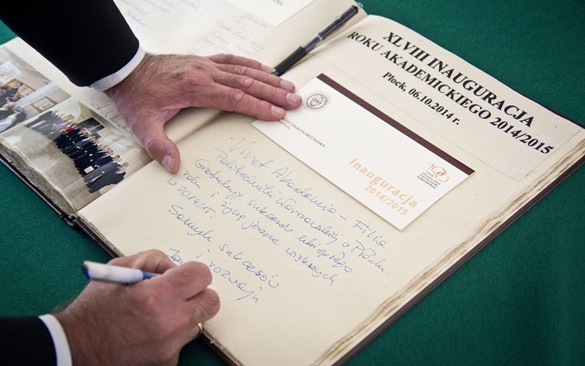 XLVIII INAUGURACJA
ROKU AKADEMICKIEGO 2014/2015
Płock, 06.10.2014 r.
Inauguracja
2014/2015
Vivat Akademia – Filia
Politechniki Warszawskiej w Płocku
Gratuluję sukcesów ubiegłego
roku i życzę jeszcze większych
w 2014/15.
Samych sukcesów
i rozwoju